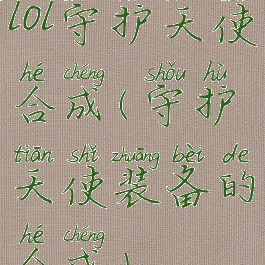 lol守护天使
hé chéng shǒu hù
合成(守护
tiān shǐ zhuāng bèi de
天使装备的
hé chéng
合成)